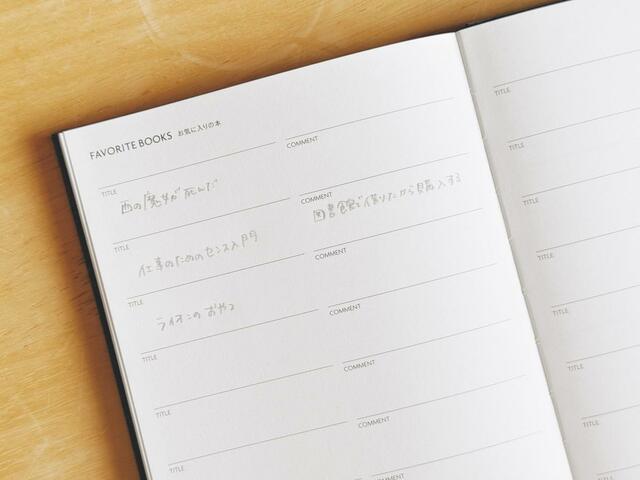 FAVORITE BOOKS お気に入りの本
TITLE COMMENT
西の魔女が死んだ
TITLE COMMENT
仕事のためのセンス入門 図書館で借りたから購入する
TITLE COMMENT
ライオンのおやつ
TITLE COMMENT
TITLE COMMENT
TITLE COMMENT
TITLE COMMENT
TITLE
TITLE
TITLE
TITLE
TITLE
TITLE
TITLE